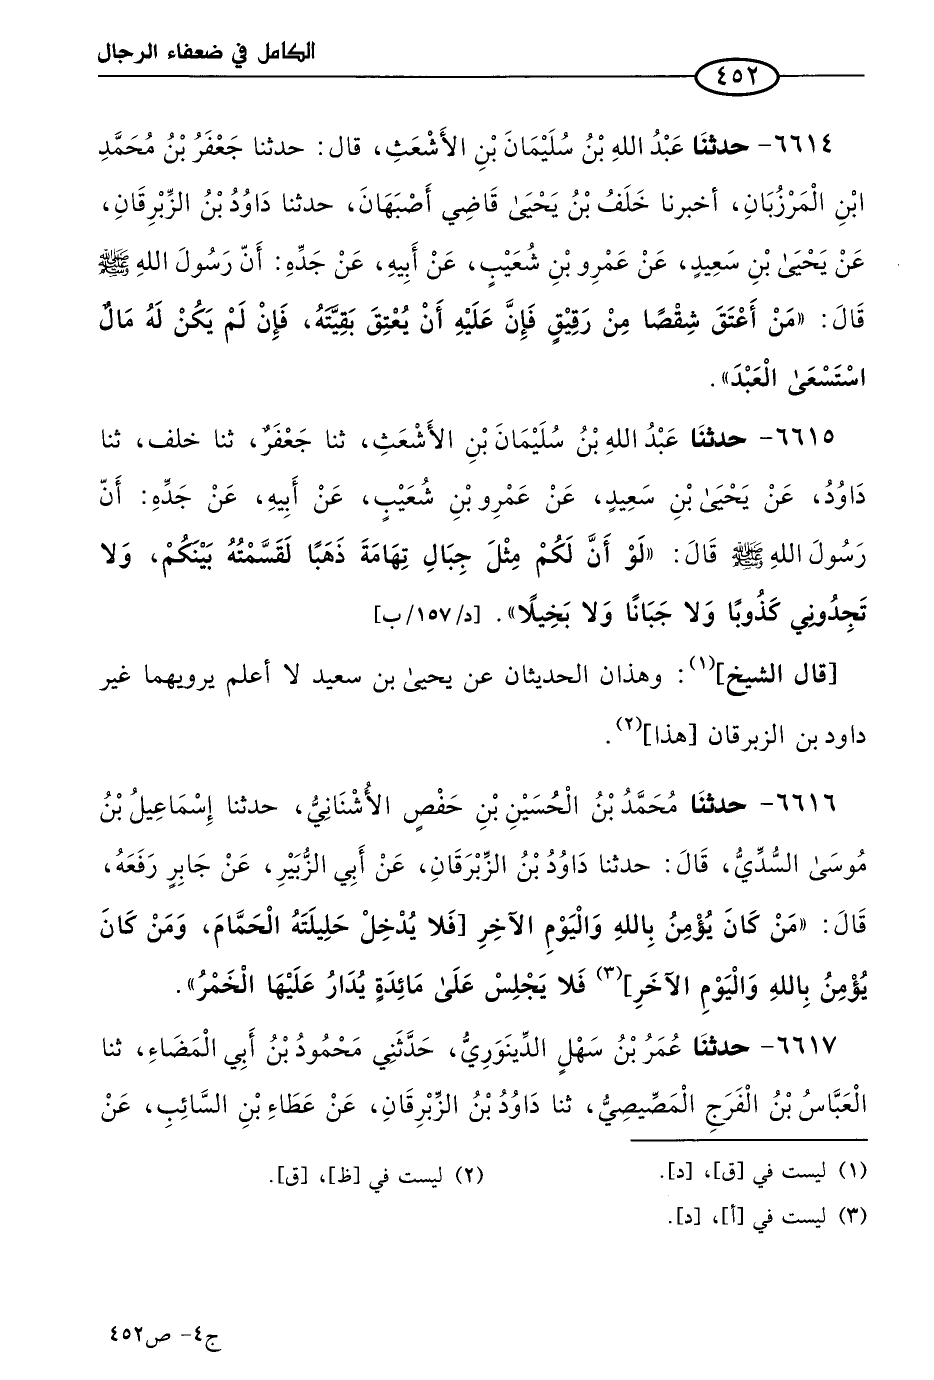 الكامل في ضعفاء الرجال
٤٥٢
٦٦١٤- حدثنَا عَبْدُ اللهِ بْنُ سُلَيْمَانَ بْنِ الأَشْعَثِ، قال: حدثنا جَعْفَرُ بْنُ مُحَمَّدِ
ابْنِ الْمَرْزُبَانِ، أخبرنا خَلَفُ بْنُ يَحْيَىٰ قَاضِي أَصْبَهَانَ، حدثنا دَاوُدُ بْنُ الزِّبْرِقَانِ،
عَنْ يَحْيَىٰ بْنِ سَعِيدٍ، عَنْ عَمْرِو بْنِ شُعَيْبٍ، عَنْ أَبِيهِ، عَنْ جَدِّهِ: أَنّ رَسُولَ اللهِ ﷺ
قَالَ: «مَنْ أَعْتَقَ شِقْصًا مِنْ رَقِيْقٍ فَإِنَّ عَلَيْهِ أَنْ يُعْتِقَ بَقِيَّتَهُ، فَإِنْ لَمْ يَكُنْ لَهُ مَالٌ
اسْتَسْعَىٰ الْعَبْدَ».
٦٦١٥- حدثنَا عَبْدُ اللهِ بْنُ سُلَيْمَانَ بْنِ الأَشْعَثِ، ثنا جَعْفَرٌ، ثنا خلف، ثنا
دَاوُدُ، عَنْ يَحْيَىٰ بْنِ سَعِيدٍ، عَنْ عَمْرِو بْنِ شُعَيْبٍ، عَنْ أَبِيهِ، عَنْ جَدِّهِ: أَنّ
رَسُولَ اللهِ ﷺ قَالَ: «لَوْ أَنَّ لَكُمْ مِثْلَ جِبَالِ تِهَامَةَ ذَهَبًا لَقَسَّمْتُهُ بَيْنَكُمْ، وَلا
تَجِدُونِي كَذُوبًا وَلا جَبَانًا وَلا بَخِيلًا». [د/١٥٧/ب]
[قال الشيخ](١): وهذان الحديثان عن يحيىٰ بن سعيد لا أعلم يرويهما غير
داود بن الزبرقان [هذا](٢).
٦٦١٦- حدثنَا مُحَمَّدُ بْنُ الْحُسَيْنِ بْنِ حَفْصٍ الأُشْنَانِيُّ، حدثنا إِسْمَاعِيلُ بْنُ
مُوسَىٰ السُّدِّيُّ، قَالَ: حدثنا دَاوُدُ بْنُ الزِّبْرَقَانِ، عَنْ أَبِي الزُّبَيْرِ، عَنْ جَابِرٍ رَفَعَهُ،
قَالَ: «مَنْ كَانَ يُؤْمِنُ بِاللهِ وَالْيَوْمِ الآخِرِ [فَلا يُدْخِلْ حَلِيلَتَهُ الْحَمَّامَ، وَمَنْ كَانَ
يُؤْمِنُ بِاللهِ وَالْيَوْمِ الآخَرِ](٣) فَلا يَجْلِسْ عَلَىٰ مَائِدَةٍ يُدَارُ عَلَيْهَا الْخَمْرُ».
٦٦١٧- حدثنَا عُمَرُ بْنُ سَهْلٍ الدِّينَوَرِيُّ، حَدَّثَنِي مَحْمُودُ بْنُ أَبِي الْمَضَاءِ، ثنا
الْعَبَّاسُ بْنُ الْفَرَجِ الْمَصِّيصِيُّ، ثنا دَاوُدُ بْنُ الزِّبْرِقَانِ، عَنْ عَطَاءِ بْنِ السَّائِبِ، عَنْ
(١) ليست في [ق]، [د].
(٢) ليست في [ظ]، [ق].
(٣) ليست في [أ]، [د].
ج٤- ص٤٥٢